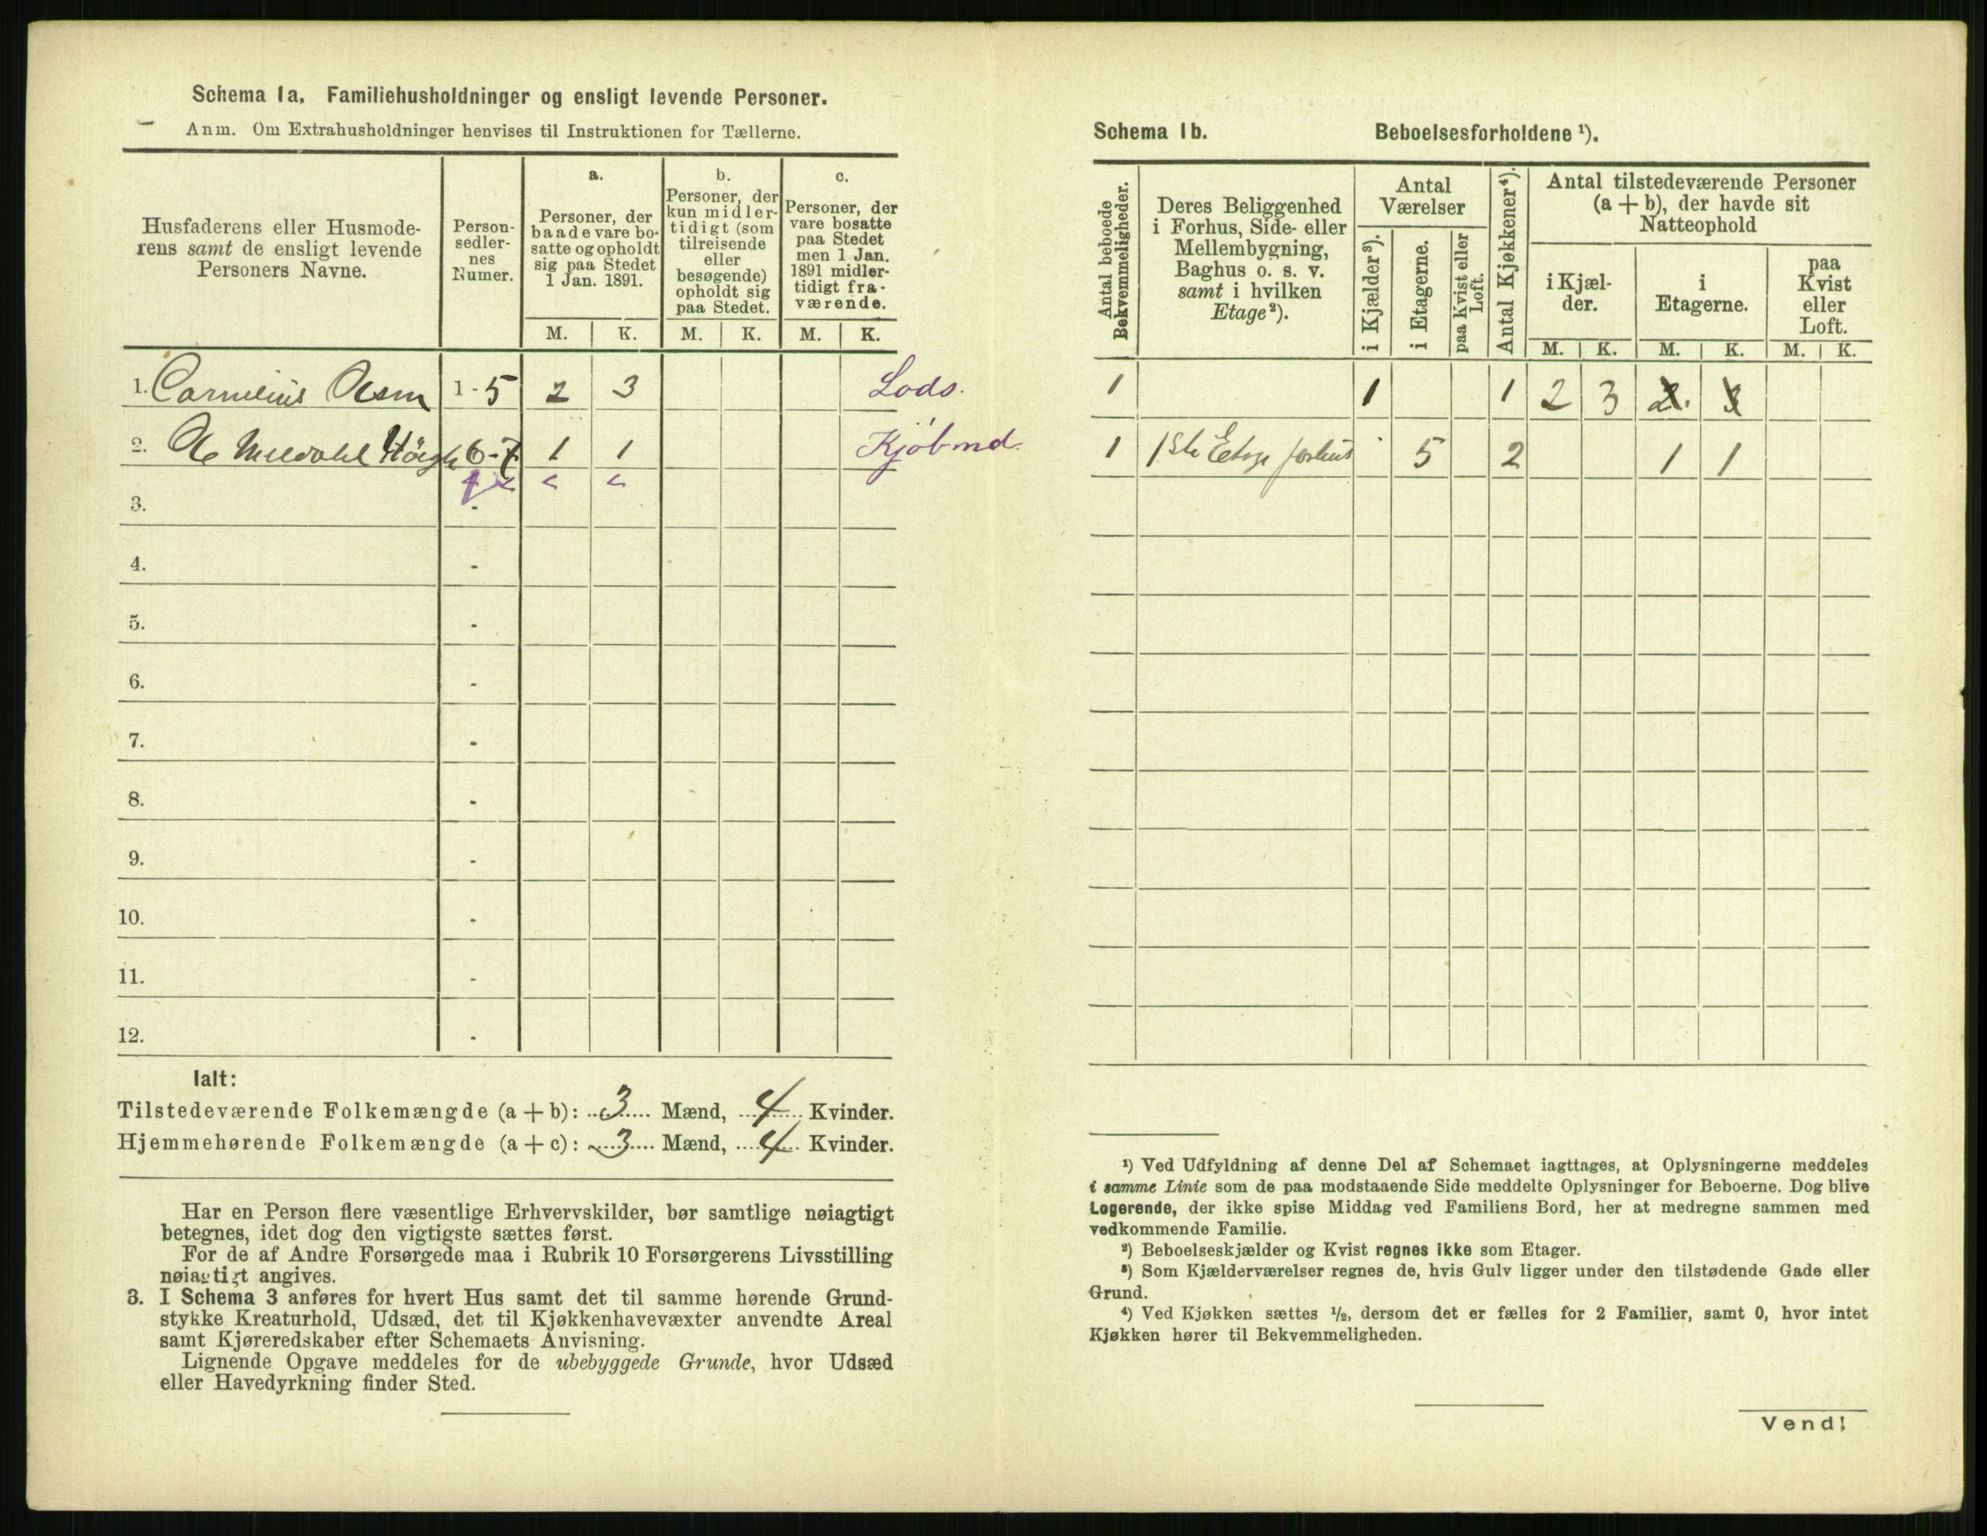 Schema 1a. Familiehusholdninger og ensligt levende Personer.
Anm. Om Extrahusholdninger henvises til Instruktionen for Tællerne.
Husfaderens eller Husmoderens samt de ensligt levende Personers Navne.
Personsedlernes Numer.
a.
Personer, der baade vare bosatte og opholdt sig paa Stedet 1 Jan. 1891.
b.
Personer, der kun midlertidigt (som tilreisende eller besøgende) opholdt sig paa Stedet.
c.
Personer, der vare bosatte paa Stedet men 1 Jan. 1891 midlertidigt fraværende.
M. K. M. K. M. K.
1. Cornelius 1-5 2 3 Lods.
2. Meldahl Høegh 6-7 1 1 Kjøbmd.
3. -
4. -
5. -
6. -
7. -
8. -
9. -
10. -
11. -
12. -
Ialt:
Tilstedeværende Folkemængde (a + b): 3 Mænd, 4 Kvinder.
Hjemmehørende Folkemængde (a + c): 3 Mænd, 4 Kvinder.
Har en Person flere væsentlige Erhvervskilder, bør samtlige nøiagtigt
betegnes, idet dog den vigtigste sættes først.
For de af Andre Forsørgede maa i Rubrik 10 Forsørgerens Livsstilling
nøiagtigt angives.
3. I Schema 3 anføres for hvert Hus samt det til samme hørende Grund-
stykke Kreaturhold, Udsæd, det til Kjøkkenhavevæxter anvendte Areal
samt Kjøreredskaber efter Schemaets Anvisning.
Lignende Opgave meddeles for de ubebyggede Grunde, hvor Udsæd
eller Havedyrkning finder Sted.
Schema 1b. Beboelsesforholdene ¹).
Antal beboede Bekvemmeligheder.
Deres Beliggenhed i Forhus, Side- eller Mellembygning, Baghus o. s. v. samt i hvilken Etage ²).
Antal Værelser
i Kjælder ³).
i Etagerne.
paa Kvist eller Loft.
Antal Kjøkkener ⁴).
Antal tilstedeværende Personer (a + b), der havde sit Natteophold
i Kjælder.
i Etagerne.
paa Kvist eller Loft.
M. K. M. K. M. K.
1 1 1 2 3 2 3
1 1ste Etage forhus 5 2 1 1
¹) Ved Udfyldning af denne Del af Schemaet iagttages, at Oplysningerne meddeles
i samme Linie som de paa modstaaende Side meddelte Oplysninger for Beboerne. Dog blive
Logerende, der ikke spise Middag ved Familiens Bord, her at medregne sammen med
vedkommende Familie.
²) Beboelseskjælder og Kvist regnes ikke som Etager.
³) Som Kjælderværelser regnes de, hvis Gulv ligger under den tilstødende Gade eller
Grund.
⁴) Ved Kjøkken sættes ½, dersom det er fælles for 2 Familier, samt 0, hvor intet
Kjøkken hører til Bekvemmeligheden.
Vend!